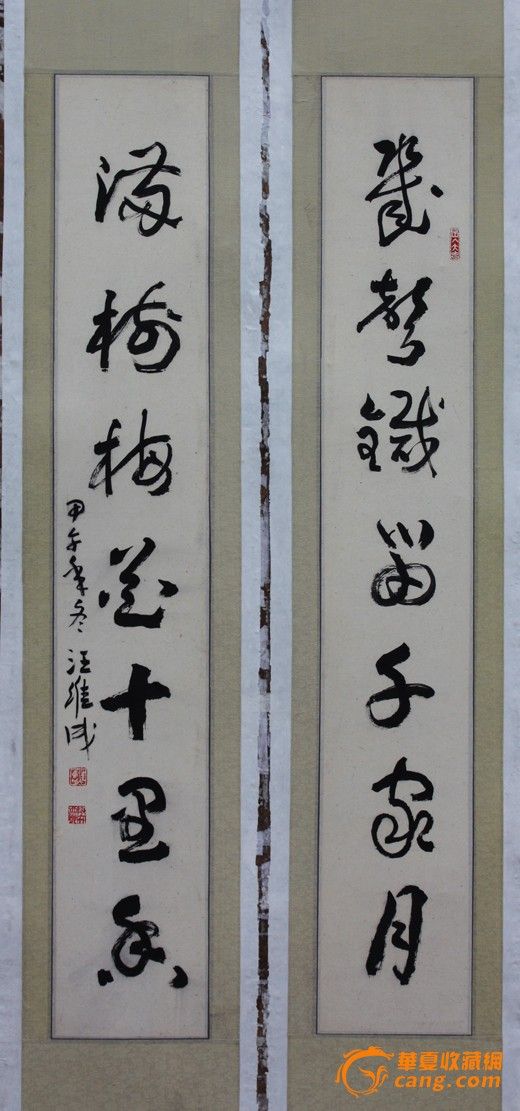 几声铁笛千家月
满树梅花十里香
甲午年冬 汪維成
華夏收藏網
cang.com